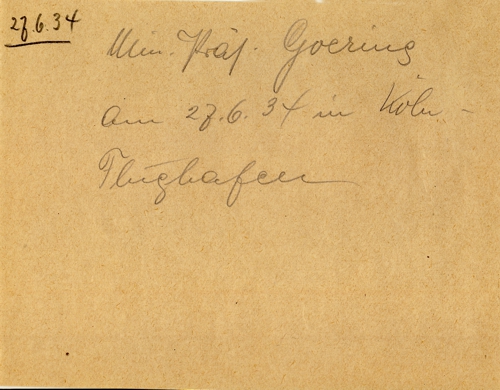 27.6.34
Min. Präs. Goering
am 27.6.34 in Köln -
Flughafen